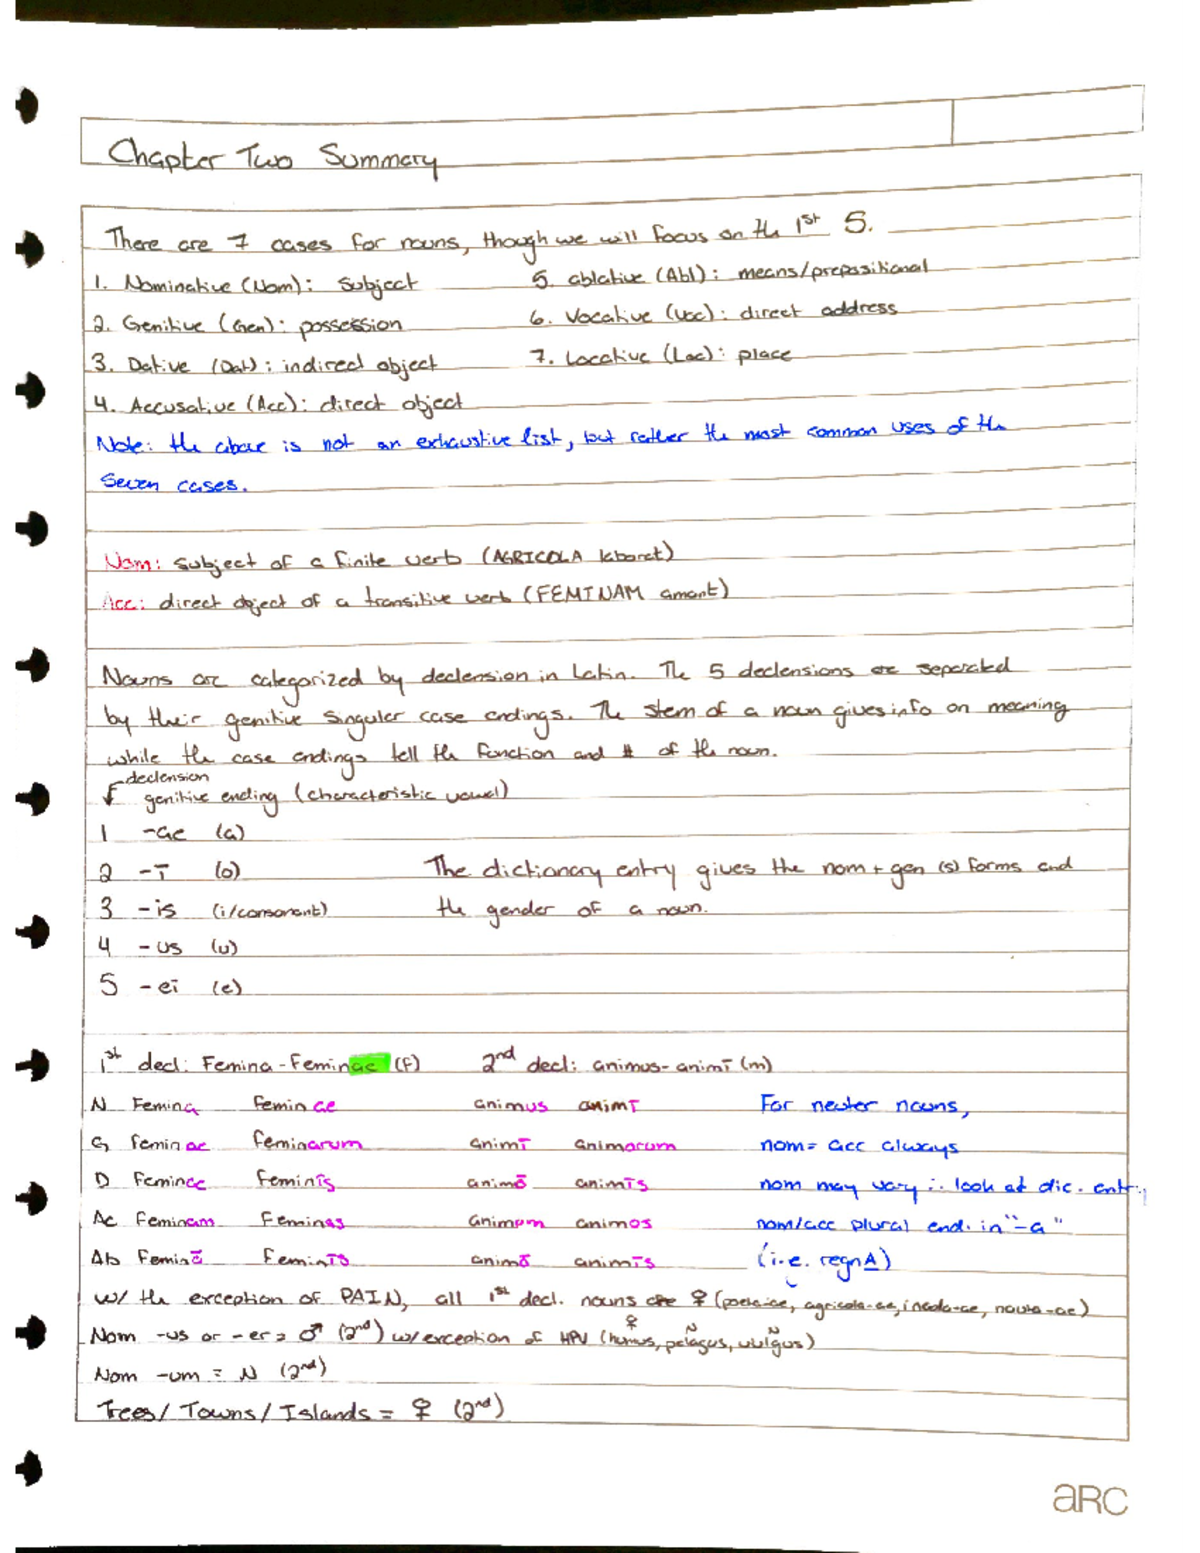 Chapter Two Summary
There are 7 cases for nouns, though we will focus on the 1st 5.
1. Nominative (Nom): subject
2. Genitive (Gen): possession
3. Dative (Dat): indirect object
4. Accusative (Acc): direct object
5. ablative (Abl): means/prepositional
6. Vocative (Voc): direct address
7. Locative (Loc): place
Note: the above is not an exhaustive list, but rather the most common uses of the
Seven cases.
Nom: subject of a finite verb (AGRICOLA laborat)
Acc: direct object of a transitive verb (FEMINAM amant)
Nouns are categorized by declension in Latin. The 5 declensions are separated
by their genitive singular case endings. The stem of a noun gives info on meaning
while the case endings tell the function and # of the noun.
declension
genitive ending (characteristic vowel)
1 -ae (a)
2 -ī (o)
3 -is (i/consonant)
4 -us (u)
5 -eī (e)
The dictionary entry gives the nom + gen (s) forms and
the gender of a noun.
1st decl: Femina-Feminae (f) 2nd decl: animus-animī (m)
N Femina feminae animus animī
G feminae feminarum animī animorum
D Feminae feminīs animō animīs
Ac feminam Feminas animum animos
Ab Feminā feminīs animō animīs
For neuter nouns,
nom = acc always
nom may vary ∴ look at dic. entr.
nom/acc plural end. in "-a"
(i.e. regnA)
w/ the exception of PAIN, all 1st decl. nouns are ♀ (poeta-ae, agricola-ae, incola-ae, nauta-ae)
Nom -us or -er = ♂ (2nd) w/ exception of HPV (humus, pelagus, vulgus)
♀ N N
Nom -um = N (2nd)
Trees/Towns/Islands = ♀ (2nd)
aRC